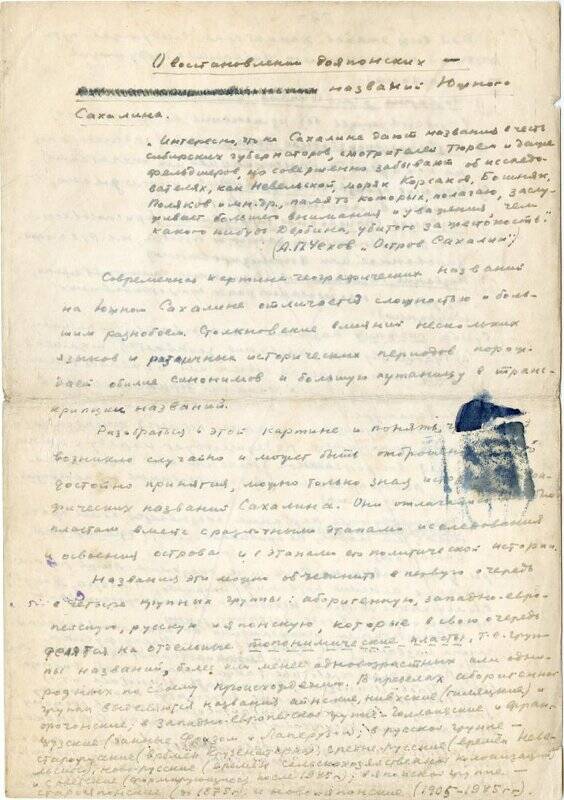 О восстановлении дояпонских —
названий Южного
Сахалина.
„Интересно, что на Сахалине дают названия в честь
сибирских губернаторов, смотрителей тюрем и даже
фельдшеров, но совершенно забывают об исследо-
вателях, как Невельской, моряк Корсаков, Бошняк,
Поляков и мн. др., память которых, полагаю, заслу-
живает большего внимания и уважения, чем
какого нибудь Дербина, убитого за жестокость."
(А.П. Чехов „Остров Сахалин")
Современная картина географических названий
на южном Сахалине отличается сложностью и боль-
шим разнобоем. Столкновение влияний нескольких
языков и различных исторических периодов порож-
дает обилие синонимов и большую путаницу в транс-
крипции названий.
Разобраться в этой картине и понять,
возникло случайно и может быть отброшено
достойно принятия, можно только зная
фических названий Сахалина. Они
пластам вместе с различными этапами исследования
и освоения острова и с этапами его политической истории.
Названия эти можно объединить в первую очередь
в четыре крупных группы: аборигенную, западно-евро-
пейскую, русскую и японскую, которые в свою очередь
делятся на отдельные топонимические пласты, т.е. груп-
пы названий, более или менее одновозрастных или одно-
родных по своему происхождению. В пределах аборигенной
группы выделяются названия айнские, нивхские (гиляцкие) и
орочонские; в западно-европейской группе — голландские и фран-
цузские (данные Фризом и Лаперузом); в русской группе —
старорусские (времён Крузенштерна), средне-русские (времён Неве-
льского), новорусские (времён сельскохозяйственной колонизации)
и советские (формирующиеся после 1945 г.); в японской группе —
старояпонские (до 1875 г.) и новояпонские (1905-1945 г.г.).